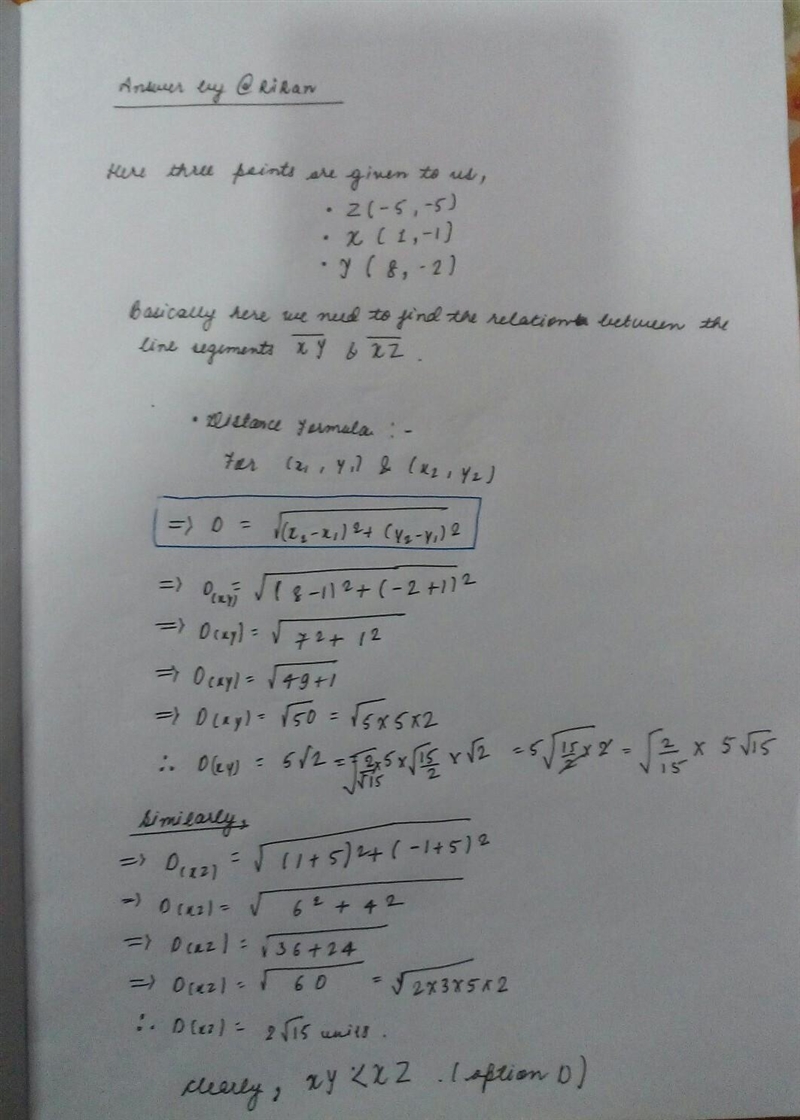 Answer by @RiRan
Here three points are given to us,
• Z(-5, -5)
• X (1,-1)
• Y (8, -2)
Basically here we need to find the relation between the
line segments XY & XZ.
• Distance Formula :-
For (x₁, y₁) & (x₂, y₂)
=> D = √(x₂-x₁)²+(y₂-y₁)²
=> D(xy) = √(8-1)²+(-2+1)²
=> D(xy) = √7²+1²
=> D(xy) = √49+1
=> D(xy) = √50 = √5×5×2
∴ D(xy) = 5√2 = ×5×√15/2 ×√2 = 5√15/2×2 = √2/15 × 5√15
Similarly,
=> D(xz) = √(1+5)²+(-1+5)²
=> D(xz) = √6²+4²
=> D(xz) = √36+24
=> D(xz) = √60 = √2×3×5×2
∴ D(xz) = 2√15 units.
Clearly, XY < XZ. (option D)